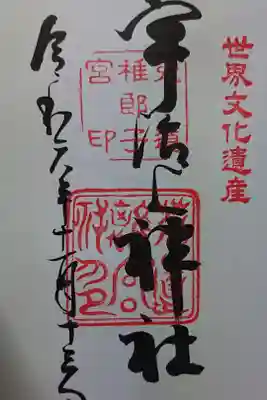 世界文化遺産
宇治上神社
菟道稚郎子宮印
令和六年十一月十三日